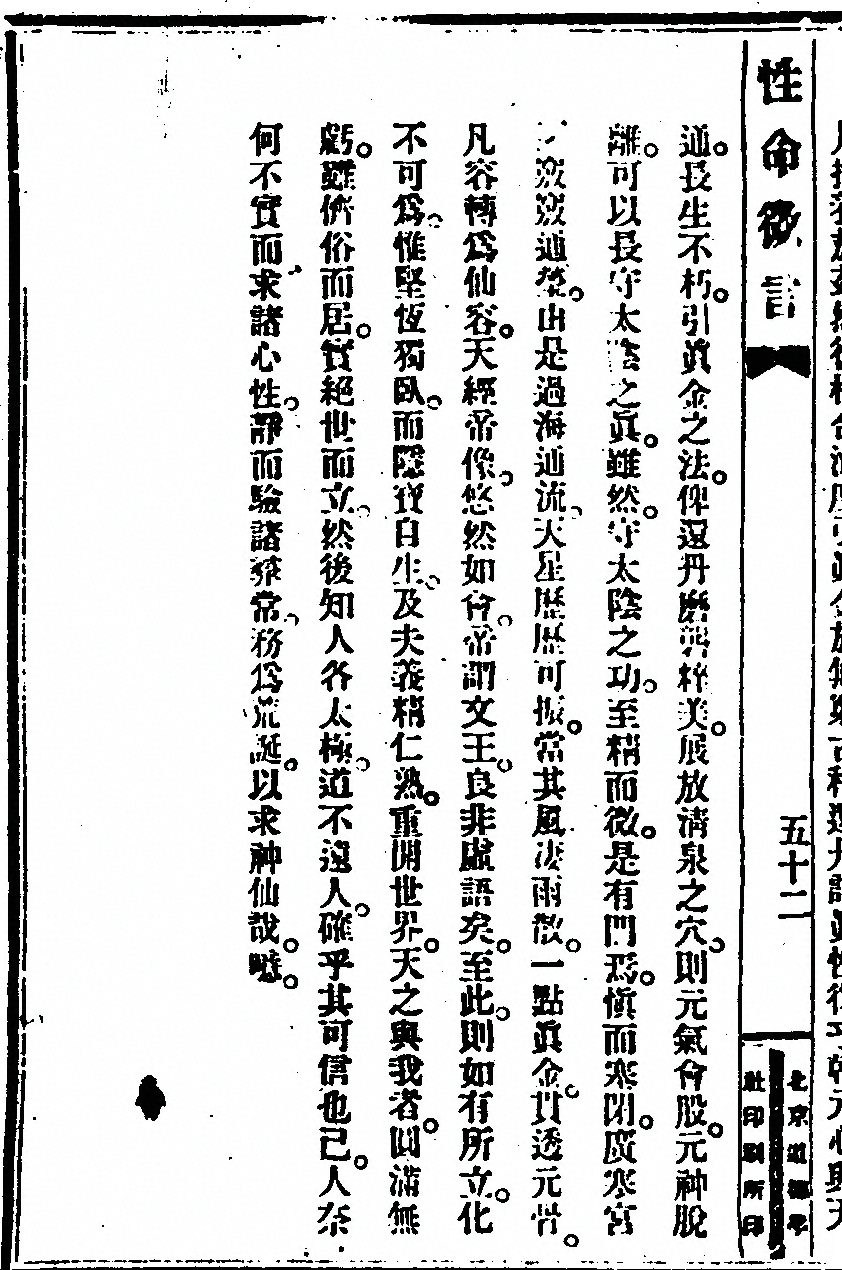 性命微言
五十二
北京道德學社印刷所印
通。長生不朽。引眞金之法。俾還丹磨礱粹美。展放淸泉之穴。則元氣會股。元神脫
離。可以長守太陰之眞。雖然。守太陰之功。至精而微。是有門焉。愼而塞閉。廣寒宮
激激通瑩。由是過海通流。天星歷歷可振。當其風凄雨散。一點眞金。貫透元骨。
凡容轉爲仙容。天經帝像。悠然如會。帝謂文王。良非虛語矣。至此。則如有所立。化
不可爲。惟堅恆獨臥。而隱寶自生。及夫義精仁熟。重開世界。天之與我者。圓滿無
虧。雖儕俗而居。實絕世而立。然後知人各太極。道不遠人。確乎其可信也已。人奈
何不實而求諸心性。靜而驗諸彝常。務爲荒誕。以求神仙哉。噫。